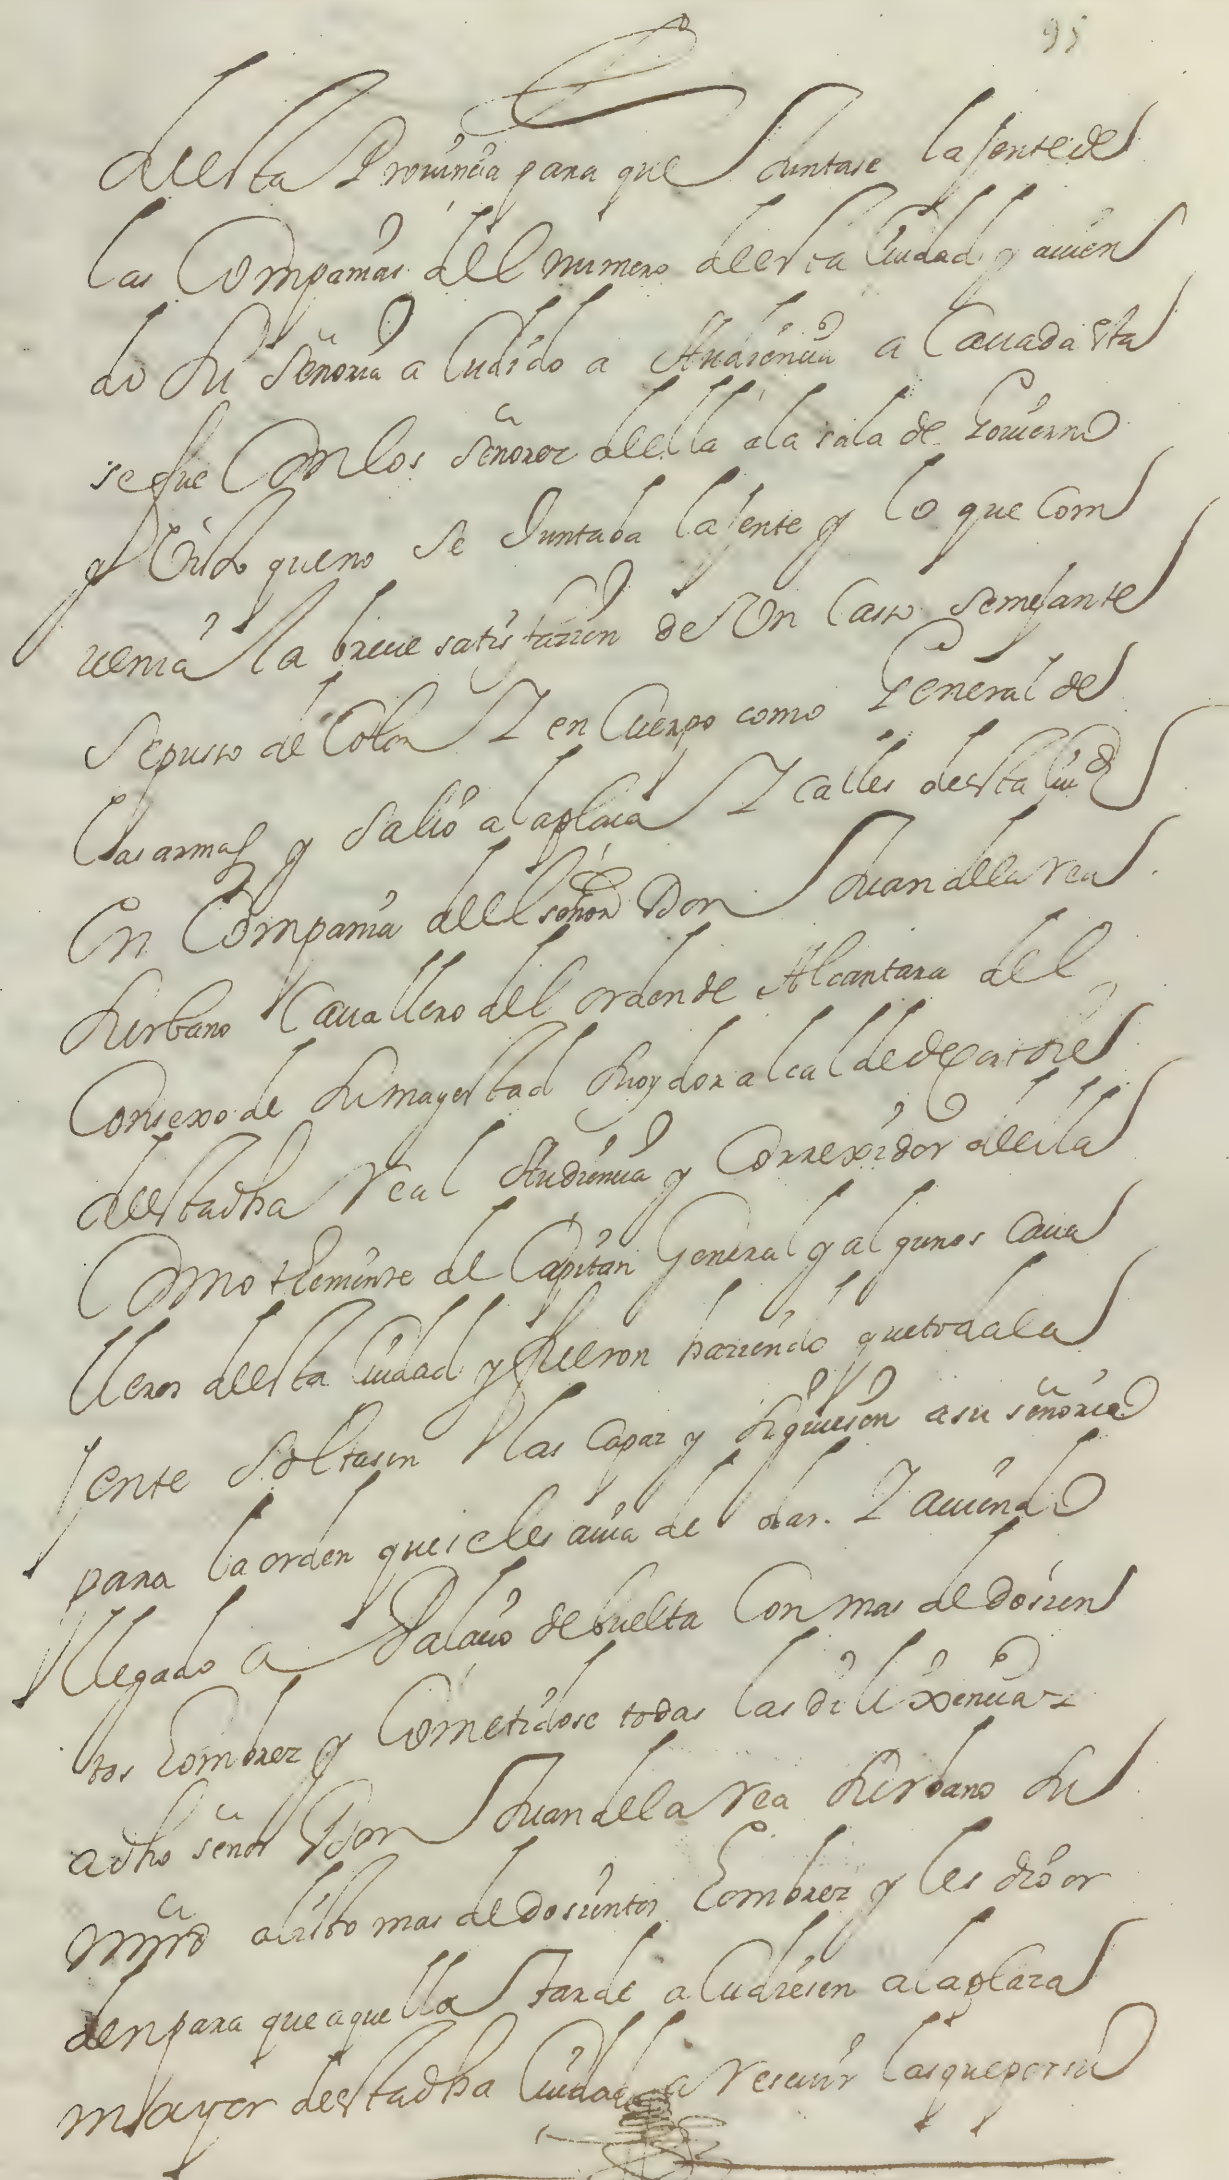 95
de esta Prouincia para que Juntase la Jente de
las Compañias del numero de esta Ciudad y auien
do Su Señoria acudido a Audiencia acauada esta
se fue Con los Señores de ella a la sala de Gouierno
y Visto que no se Juntaba la Jente y lo que Com
uenia la breue satisfazion de Un Casso Semejante
Se puso de Color Y en Cuerpo como General de
las armas y Salio a la plaça Y calles desta Ciud
En Compañia del Señor Don Juan de la rea
Surbano Cauallero del orden de Alcantara del
Consexo de Su magestad Su oydor alcalde de Corte
de esta dha real Audiencia y Correxidor de ella
Como theniente de Capitan General y algunos Caua
lleros de esta Ciudad y fueron haziendo que toda la
Jente Soltasen las Capas y Siguiesen a su señoria
para la orden que se les auia de dar. Y auiendo
llegado a Palacio de buelta Con mas de dosien
tos hombres y Cometidose todas las dilixencias
a dho señor Don Juan de la rea Surbano Su
mrd alisto mas de dosientos hombres y les dio or
den para que aquella tarde acudiesen a la plaza
mayor de esta dha Ciudad a reseuir las que por su